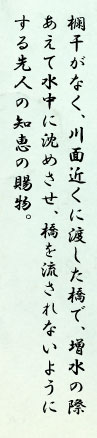 欄干がなく、川面近くに渡した橋で、増水の際
あえて水中に沈めさせ、橋を流されないように
する先人の知恵の賜物。